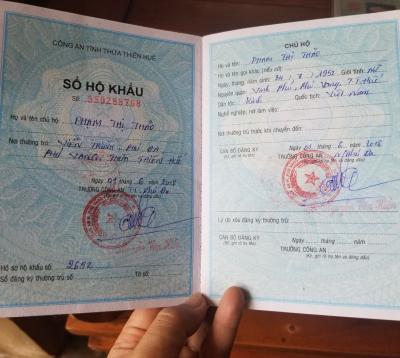 CÔNG AN TỈNH THỪA THIÊN HUẾ
SỔ HỘ KHẨU
Số:
Họ và tên chủ hộ: PHẠM THỊ THẢO
Nơi thường trú: VIỄN TRÌNH, PHÚ ĐA
PHÚ VANG, THỪA THIÊN HUẾ
Ngày 01 tháng 6 năm 2018
TRƯỞNG CÔNG AN T.T. Phú Đa
Hồ sơ hộ khẩu số: 2652
Sổ đăng ký thường trú số: Tờ số:
CHỦ HỘ
Họ và tên: PHẠM THỊ THẢO
Họ và tên gọi khác (nếu có):
Ngày, tháng, năm sinh: 1952 Giới tính: Nữ
Nguyên quán: Vinh Phú, Phú Vang, T.T. Huế
Dân tộc: Kinh Quốc tịch: Việt Nam
Nghề nghiệp, nơi làm việc:
Nơi thường trú trước khi chuyển đến:
Ngày 01 tháng 6 năm 2018
CÁN BỘ ĐĂNG KÝ
(Ký, ghi rõ họ tên)
TRƯỞNG CÔNG AN Phú Đa
Lý do xóa đăng ký thường trú:
Ngày tháng năm
CÁN BỘ ĐĂNG KÝ
(Ký, ghi rõ họ tên)
TRƯỞNG CÔNG AN
(Ký, ghi rõ họ tên và đóng dấu)